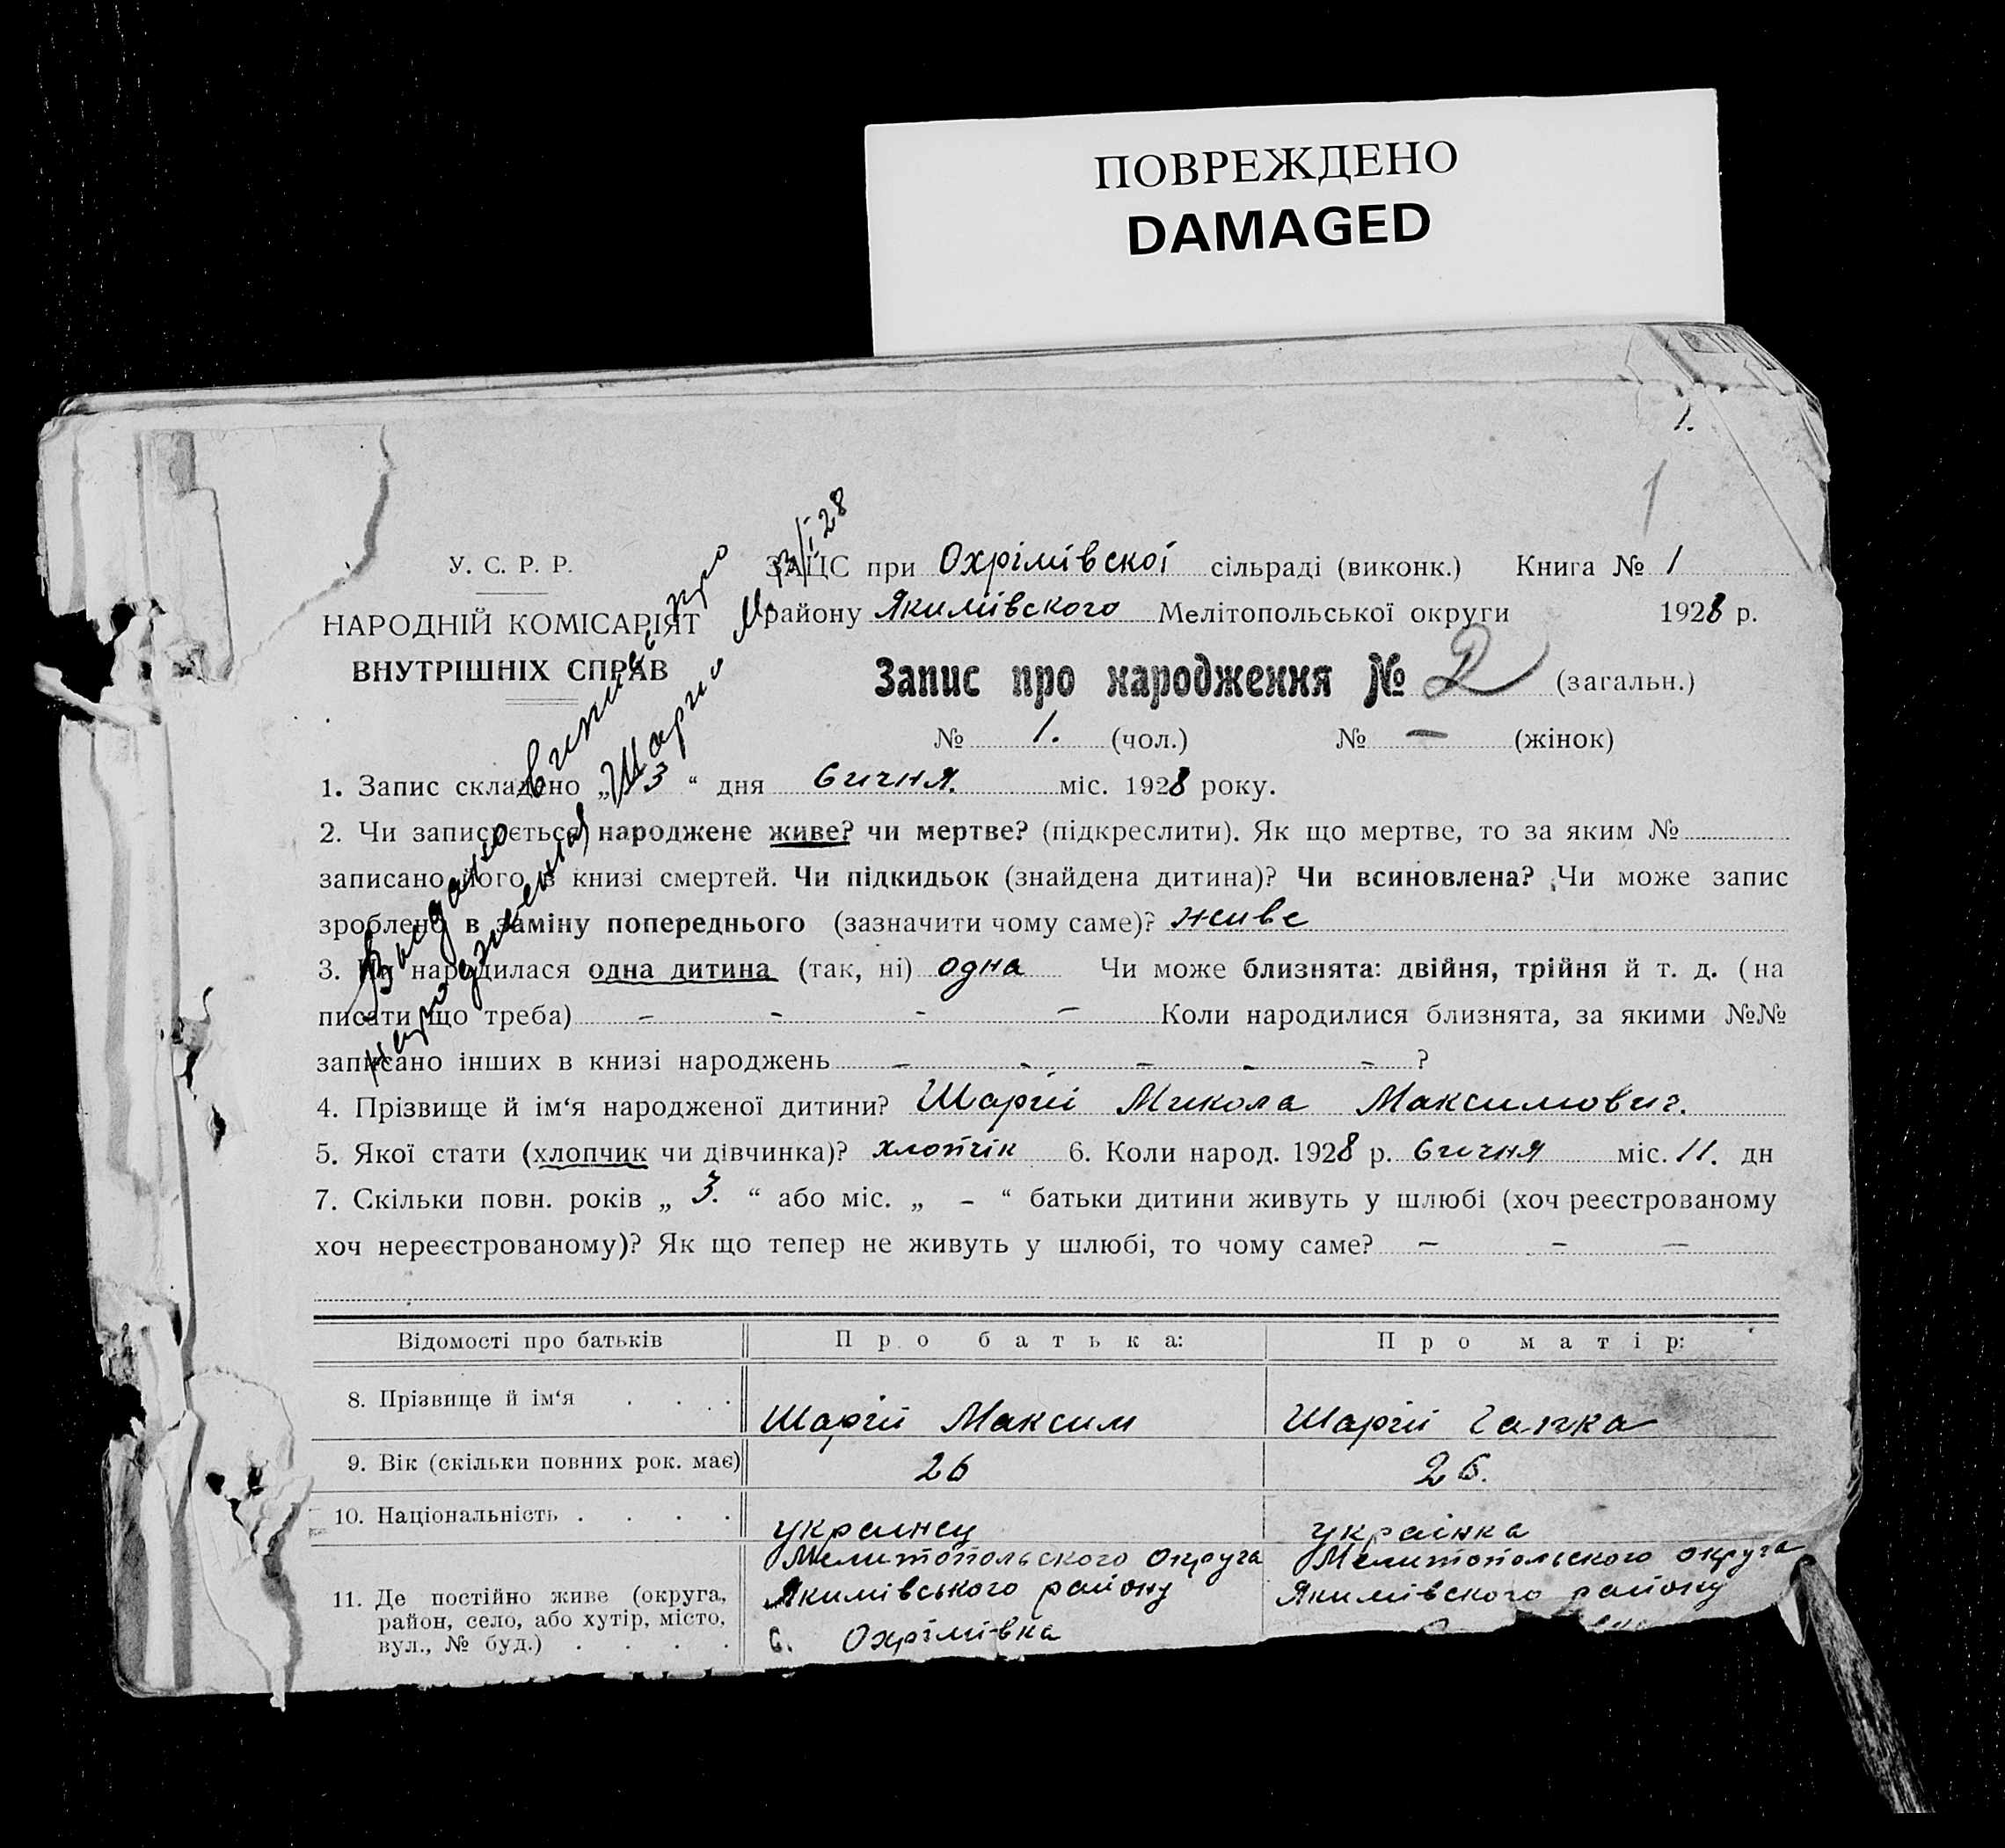 ПОВРЕЖДЕНО
DAMAGED
1.
1
У. С. Р. Р.
НАРОДНІЙ КОМІСАРІЯТ
ВНУТРІШНІХ СПРАВ
ЗАЦС при Охрімівскої сільраді (виконк.) Книга № 1
району Якимівского Мелітопольської округи 1928 р.
Запис про народження № 2 (загальн.)
№ 1. (чол.) № — (жінок)
Выдано выпись про
народження Шарий М. /I 28
1. Запис складено „ 13 “ дня Січня. міс. 1928 року.
2. Чи записується народжене живе? чи мертве? (підкреслити). Як що мертве, то за яким №
записано його в книзі смертей. Чи підкидьок (знайдена дитина)? Чи всиновлена? Чи може запис
зроблено в заміну попереднього (зазначити чому саме)? живе
3. Чи народилася одна дитина (так, ні) одна Чи може близнята: двійня, трійня й т. д. (на
писати що треба) - - - — Коли народилися близнята, за якими №№
записано інших в книзі народжень - - - - - ?
4. Прізвище й ім‘я народженої дитини? Шарій Микола Максимович.
5. Якої стати (хлопчик чи дівчинка)? хлопчік 6. Коли народ. 1928 р. Січня міс. 11. дн
7. Скільки повн. років „ 3. “ або міс. „ - “ батьки дитини живуть у шлюбі (хоч реєстрованому
хоч нереєстрованому)? Як що тепер не живуть у шлюбі, то чому саме? — — —
Відомості про батьків Про батька: Про матір:
8. Прізвище й ім‘я . . . . Шарій Максим Шарій Ганка
9. Вік (скільки повних рок. має) 26 26.
10. Національність . . . . украинец украінка
11. Де постійно живе (округа, район, село, або хутір, місто, вул., № буд.) . . . .
Мелитопольского округа Мелитопольского округа
Якимівського району Якимівского району
с. Охрімівка